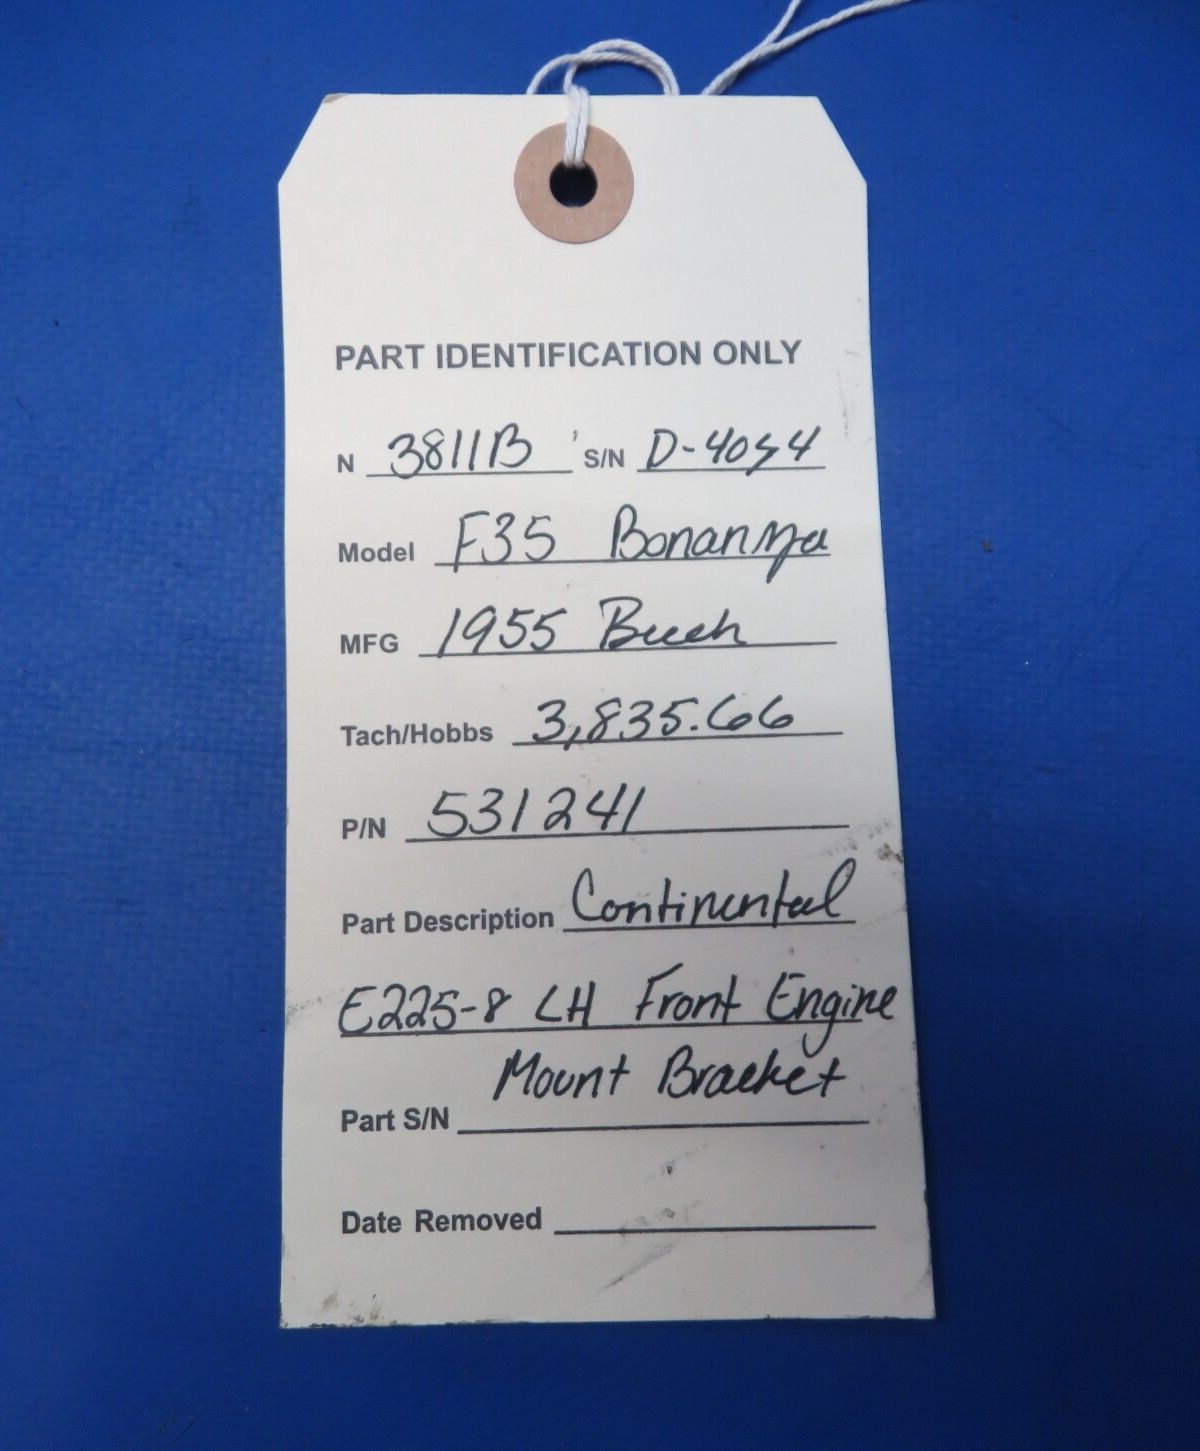 PART IDENTIFICATION ONLY
N 3811B S/N D-4054
Model F35 Bonanza
MFG 1955 Beech
Tach/Hobbs 3,835.66
P/N 531241
Part Description Continental
E225-8 LH Front Engine
Mount Bracket
Part S/N
Date Removed